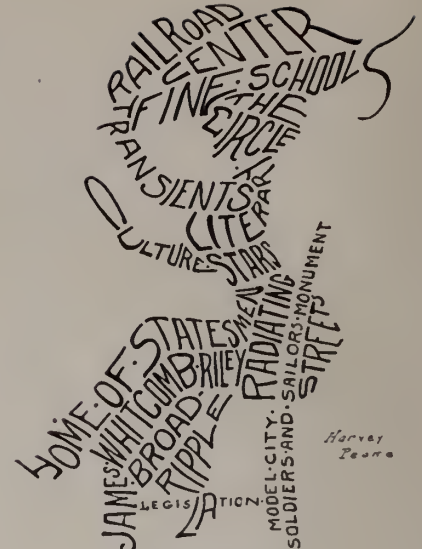 RAILROAD
CENTER
FINE · SCHOOLS
THE
CIRCLE
TRANSIENTS
LITERARY
STARS
CULTURE
HOME · OF · STATESMEN
JAMES · WHITCOMB · RILEY
BROAD ·
RIPPLE
RADIATING
STREETS
LEGISLATION ·
MODEL · CITY ·
SOLDIERS · AND · SAILORS · MONUMENT
Harvey